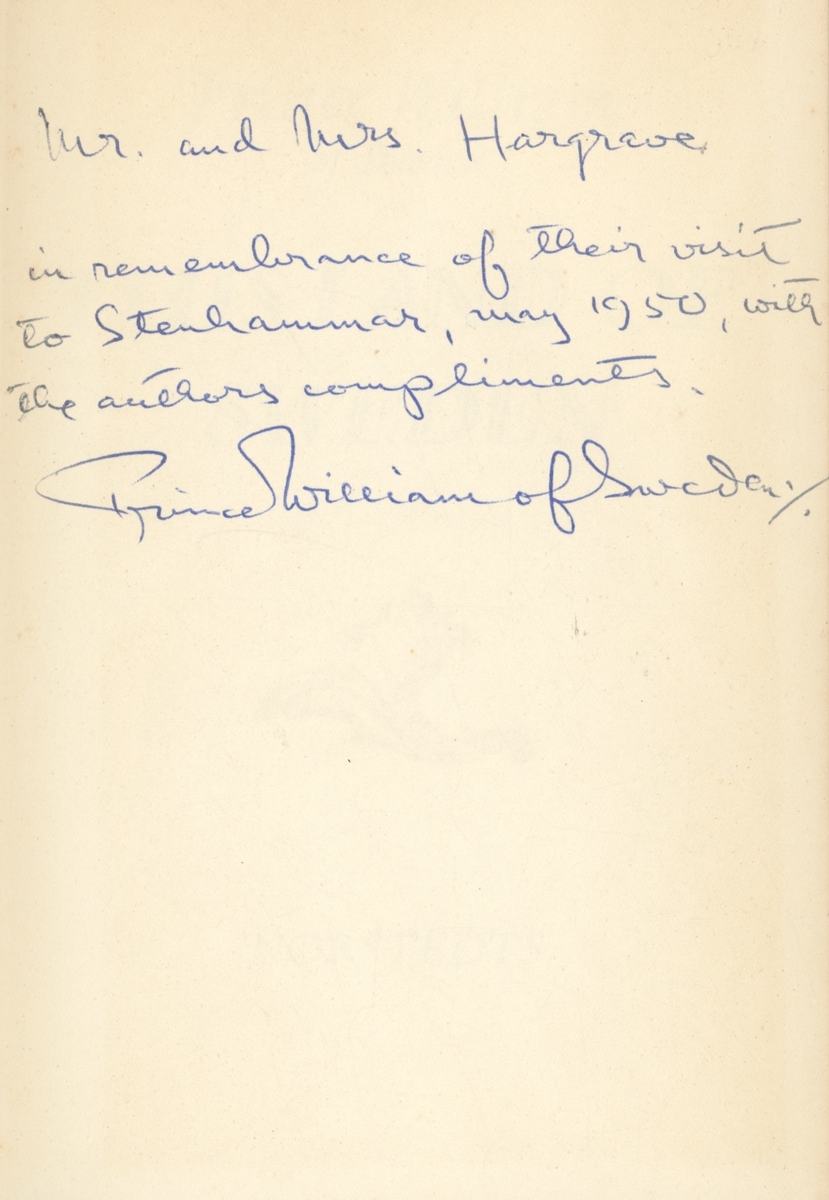 Mr. and Mrs. Hargrave
in remembrance of their visit
to Stenhammar, may 1950, with
the authors compliments.
Prince William of Sweden ./.